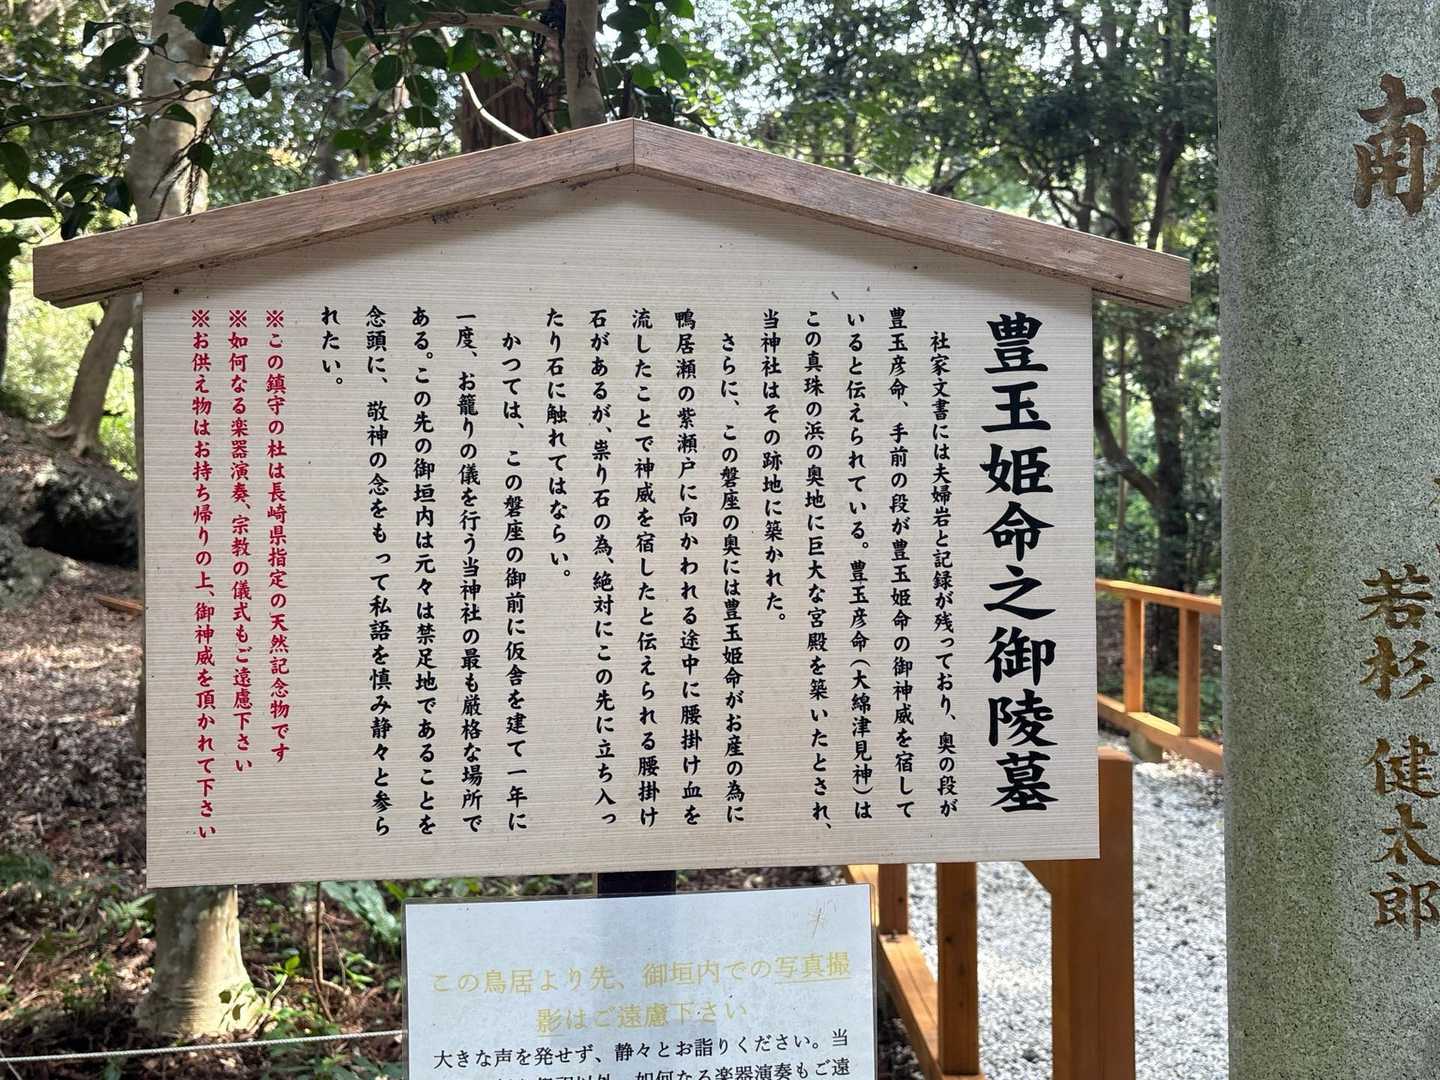 豊玉姫命之御陵墓
社家文書には夫婦岩と記録が残っており、奥の段が
豊玉彦命、手前の段が豊玉姫命の御神威を宿して
いると伝えられている。豊玉彦命（大綿津見神）は
この真珠の浜の奥地に巨大な宮殿を築いたとされ、
当神社はその跡地に築かれた。
さらに、この磐座の奥には豊玉姫命がお産の為に
鴨居瀬の紫瀬戸に向かわれる途中に腰掛け血を
流したことで神威を宿したと伝えられる腰掛け
石があるが、祟り石の為、絶対にこの先に立ち入っ
たり石に触れてはならい。
かつては、この磐座の御前に仮舎を建て一年に
一度、お籠りの儀を行う当神社の最も厳格な場所で
ある。この先の御垣内は元々は禁足地であることを
念頭に、敬神の念をもって私語を慎み静々と参ら
れたい。
※この鎮守の杜は長崎県指定の天然記念物です
※如何なる楽器演奏、宗教の儀式もご遠慮下さい
※お供え物はお持ち帰りの上、御神威を頂かれて下さい
この鳥居より先、御垣内での写真撮
影はご遠慮下さい
大きな声を発せず、静々とお詣りください。当
如何なる楽器演奏もご遠
献
若杉健太郎